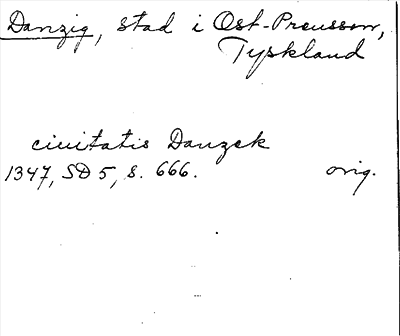 Danzig, stad i Ost-Preussen,
Tyskland
ciuitatis Danzek
1347, SD 5, s. 666. orig.